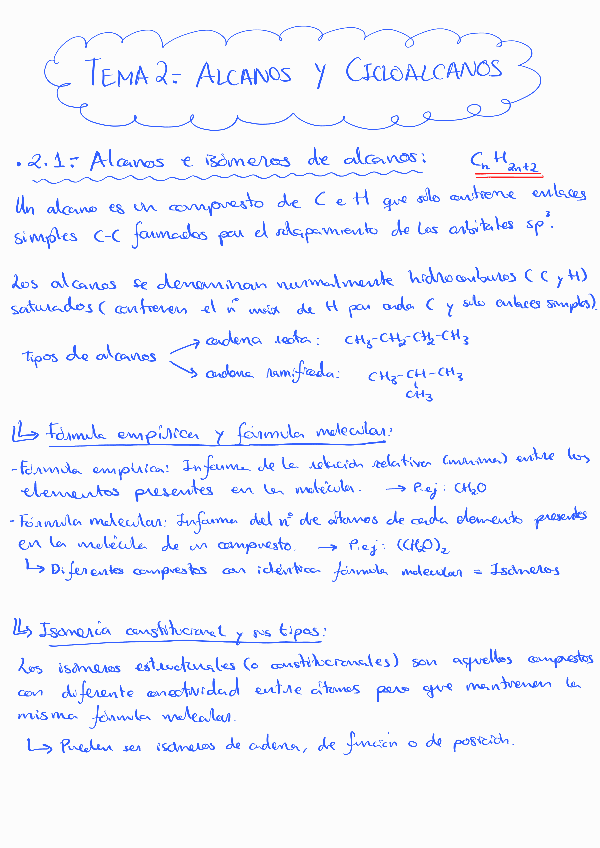 TEMA 2:- ALCANOS Y CICLOALCANOS
• 2.1:- Alcanos e isómeros de alcanos: CnH2n+2
Un alcano es un compuesto de C e H que solo contiene enlaces
simples C-C formados por el solapamiento de los orbitales sp³.
Los alcanos se denominan normalmente hidrocarburos (C y H)
saturados (contienen el nº máx de H por cada C y solo enlaces simples).
Tipos de alcanos
→ cadena recta: CH3-CH2-CH2-CH3
→ cadena ramificada: CH3-CH-CH3
CH3
↳ Fórmula empírica y fórmula molecular:
- Fórmula empírica: Informa de la relación relativa (mínima) entre los
elementos presentes en la molécula. → P.ej: CH2O
- Fórmula molecular: Informa del nº de átomos de cada elemento presentes
en la molécula de un compuesto. → P.ej: (CH2O)2
↳ Diferentes compuestos con idéntica fórmula molecular = Isómeros
↳ Isomería constitucional y sus tipos:
Los isómeros estructurales (o constitucionales) son aquellos compuestos
con diferente conectividad entre átomos pero que mantienen la
misma fórmula molecular.
↳ Pueden ser isómeros de cadena, de función o de posición.